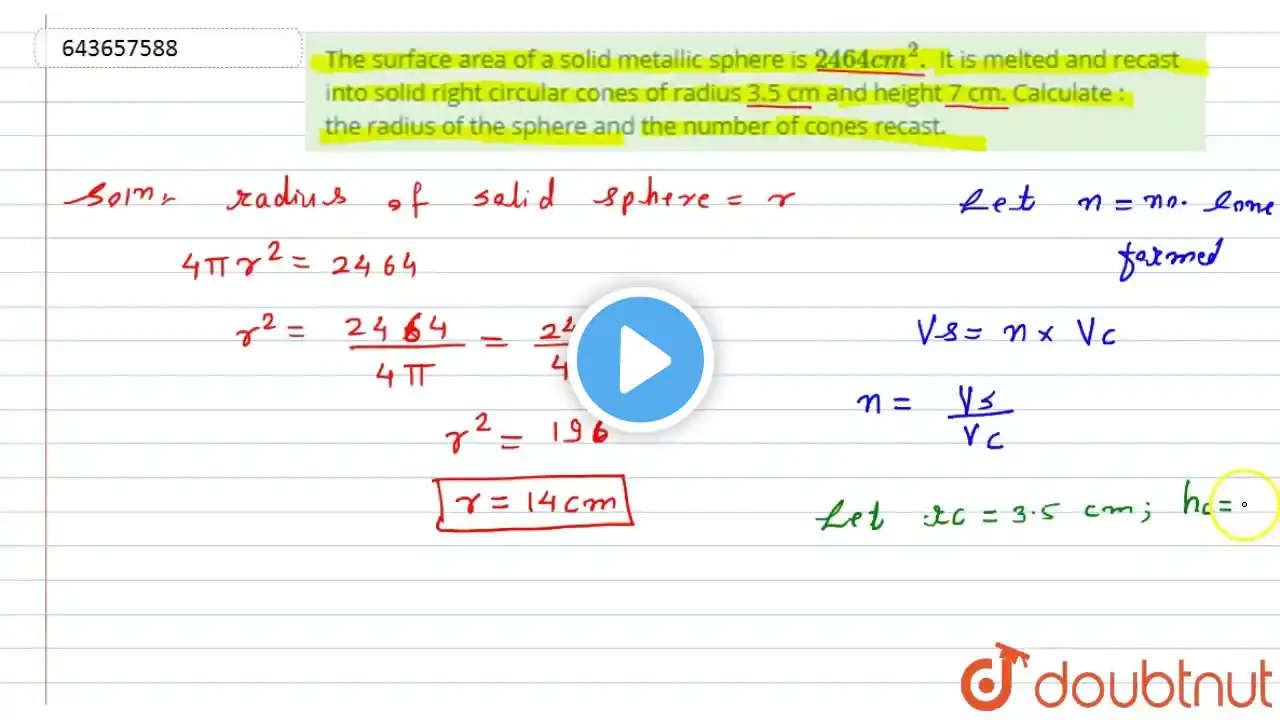 643657588
The surface area of a solid metallic sphere is 2464cm². It is melted and recast
into solid right circular cones of radius 3.5 cm and height 7 cm. Calculate :
the radius of the sphere and the number of cones recast.
Soln:- radius of salid sphere = r
4πr² = 2464
r² = 2464/4π = 24 4
r² = 196
r = 14 cm
Let n = no. Cone
formed
Vs = n × Vc
n = Vs/Vc
Let rc = 3.5 cm; hc =
doubtnut